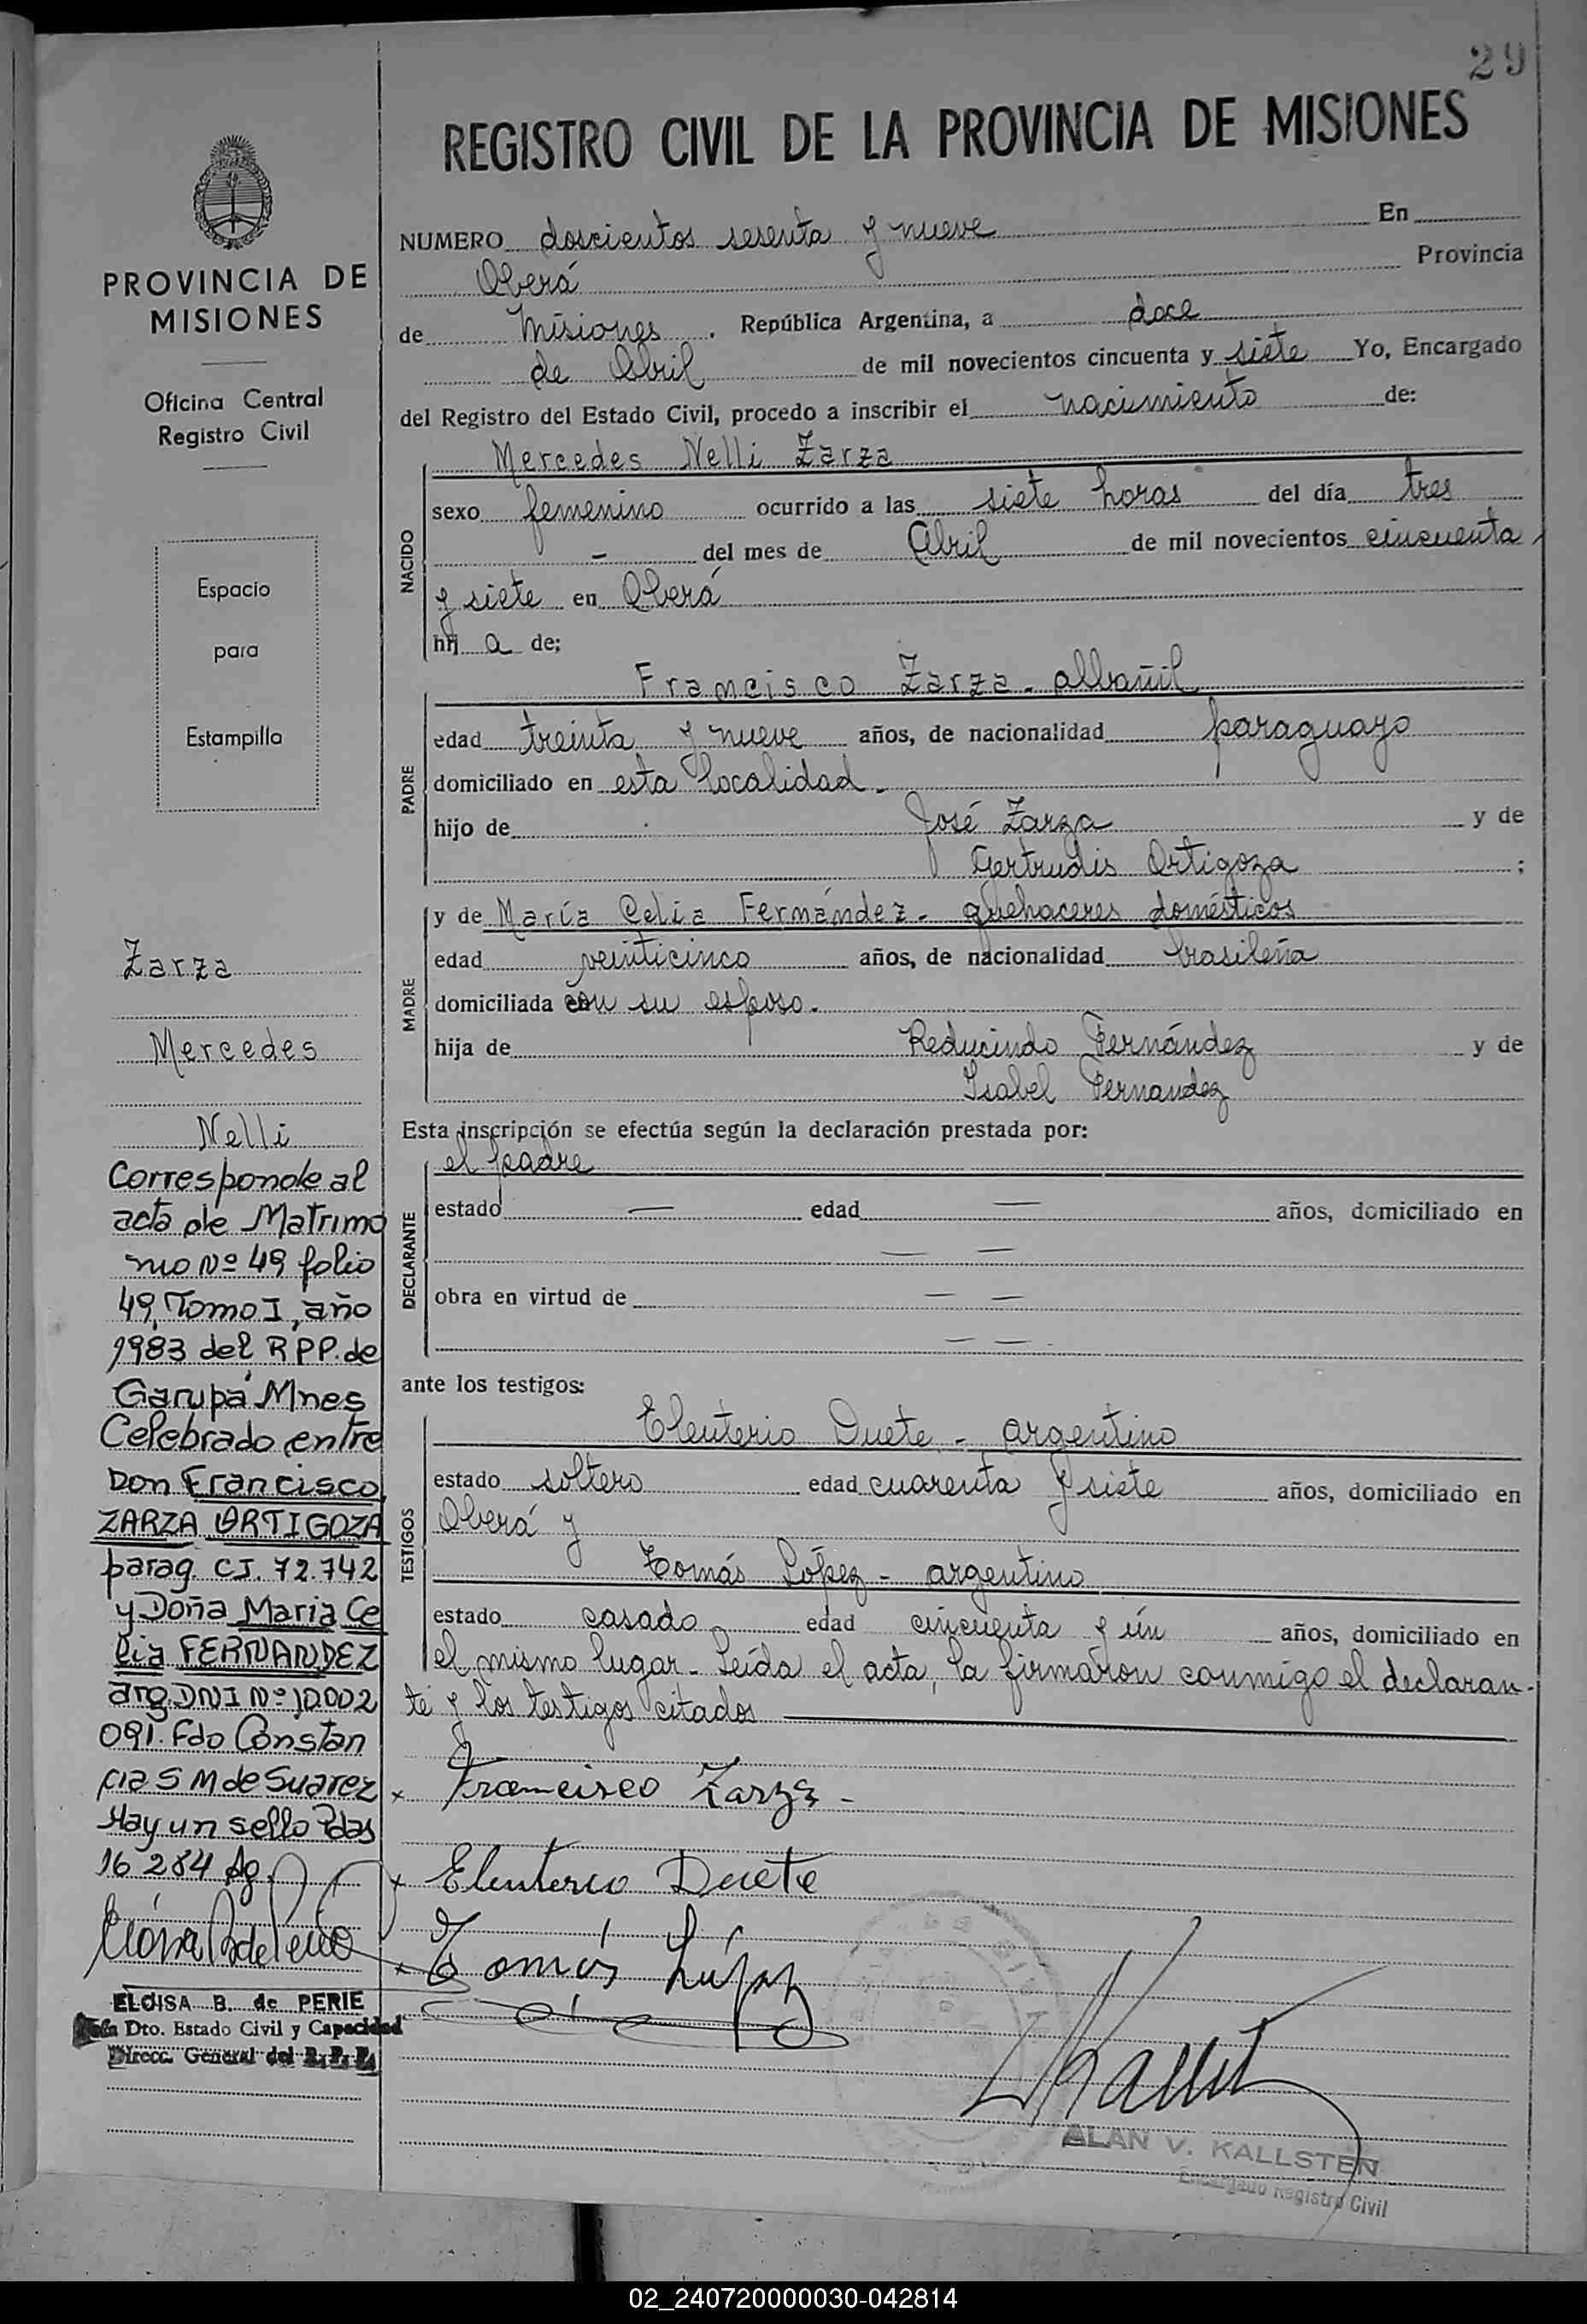 29
REGISTRO CIVIL DE LA PROVINCIA DE MISIONES
PROVINCIA DE
MISIONES
Oficina Central
Registro Civil
Espacio
para
Estampilla
Zarza
Mercedes
Nelli
Corresponde al
acta de Matrimo
nio Nº 49 folio
49, Tomo I, año
1983 del R.P.P. de
Garupá Mnes
Celebrado entre
Don Francisco
ZARZA ORTIGOZA
parag. C.I. 72.742
y Doña Maria Ce
lia FERNANDEZ
arg. DNI Nº 10.002
091. Fdo Constan
cia S M de Suarez
Hay un sello Pdas
16 2 84 Ag
ELOISA B. de PERIE
Dto. Estado Civil y Capacidad
Direcc. General del R.P.P.
NUMERO doscientos sesenta y nueve En
Oberá Provincia
de Misiones. República Argentina, a doce
de Abril de mil novecientos cincuenta y siete Yo, Encargado
del Registro del Estado Civil, procedo a inscribir el nacimiento de:
NACIDO
Mercedes Nelli Zarza
sexo femenino ocurrido a las siete horas del día tres
- del mes de Abril de mil novecientos cincuenta
y siete en Oberá
hij a de;
PADRE
Francisco Zarza - albañil
edad treinta y nueve años, de nacionalidad paraguayo
domiciliado en esta localidad.
hijo de José Zarza y de
Gertrudis Ortigoza ;
MADRE
y de María Celia Fernández - quehaceres domésticos
edad veinticinco años, de nacionalidad brasileña
domiciliada con su esposo.
hija de Reducindo Fernández y de
Isabel Fernandez
Esta inscripción se efectúa según la declaración prestada por:
DECLARANTE
el padre
estado — edad — años, domiciliado en
— —
obra en virtud de — —
— —
ante los testigos:
TESTIGOS
Eleuterio Duete - argentino
estado soltero edad cuarenta y siete años, domiciliado en
Oberá y
Tomás López - argentino
estado casado edad cincuenta y un años, domiciliado en
el mismo lugar - Leída el acta, la firmaron conmigo el declaran-
te y los testigos citados
x Francisco Zarza -
x Eleuterio Duete
x Tomás López
ALAN V. KALLSTEN
Encargado Registro Civil
02_240720000030-042814